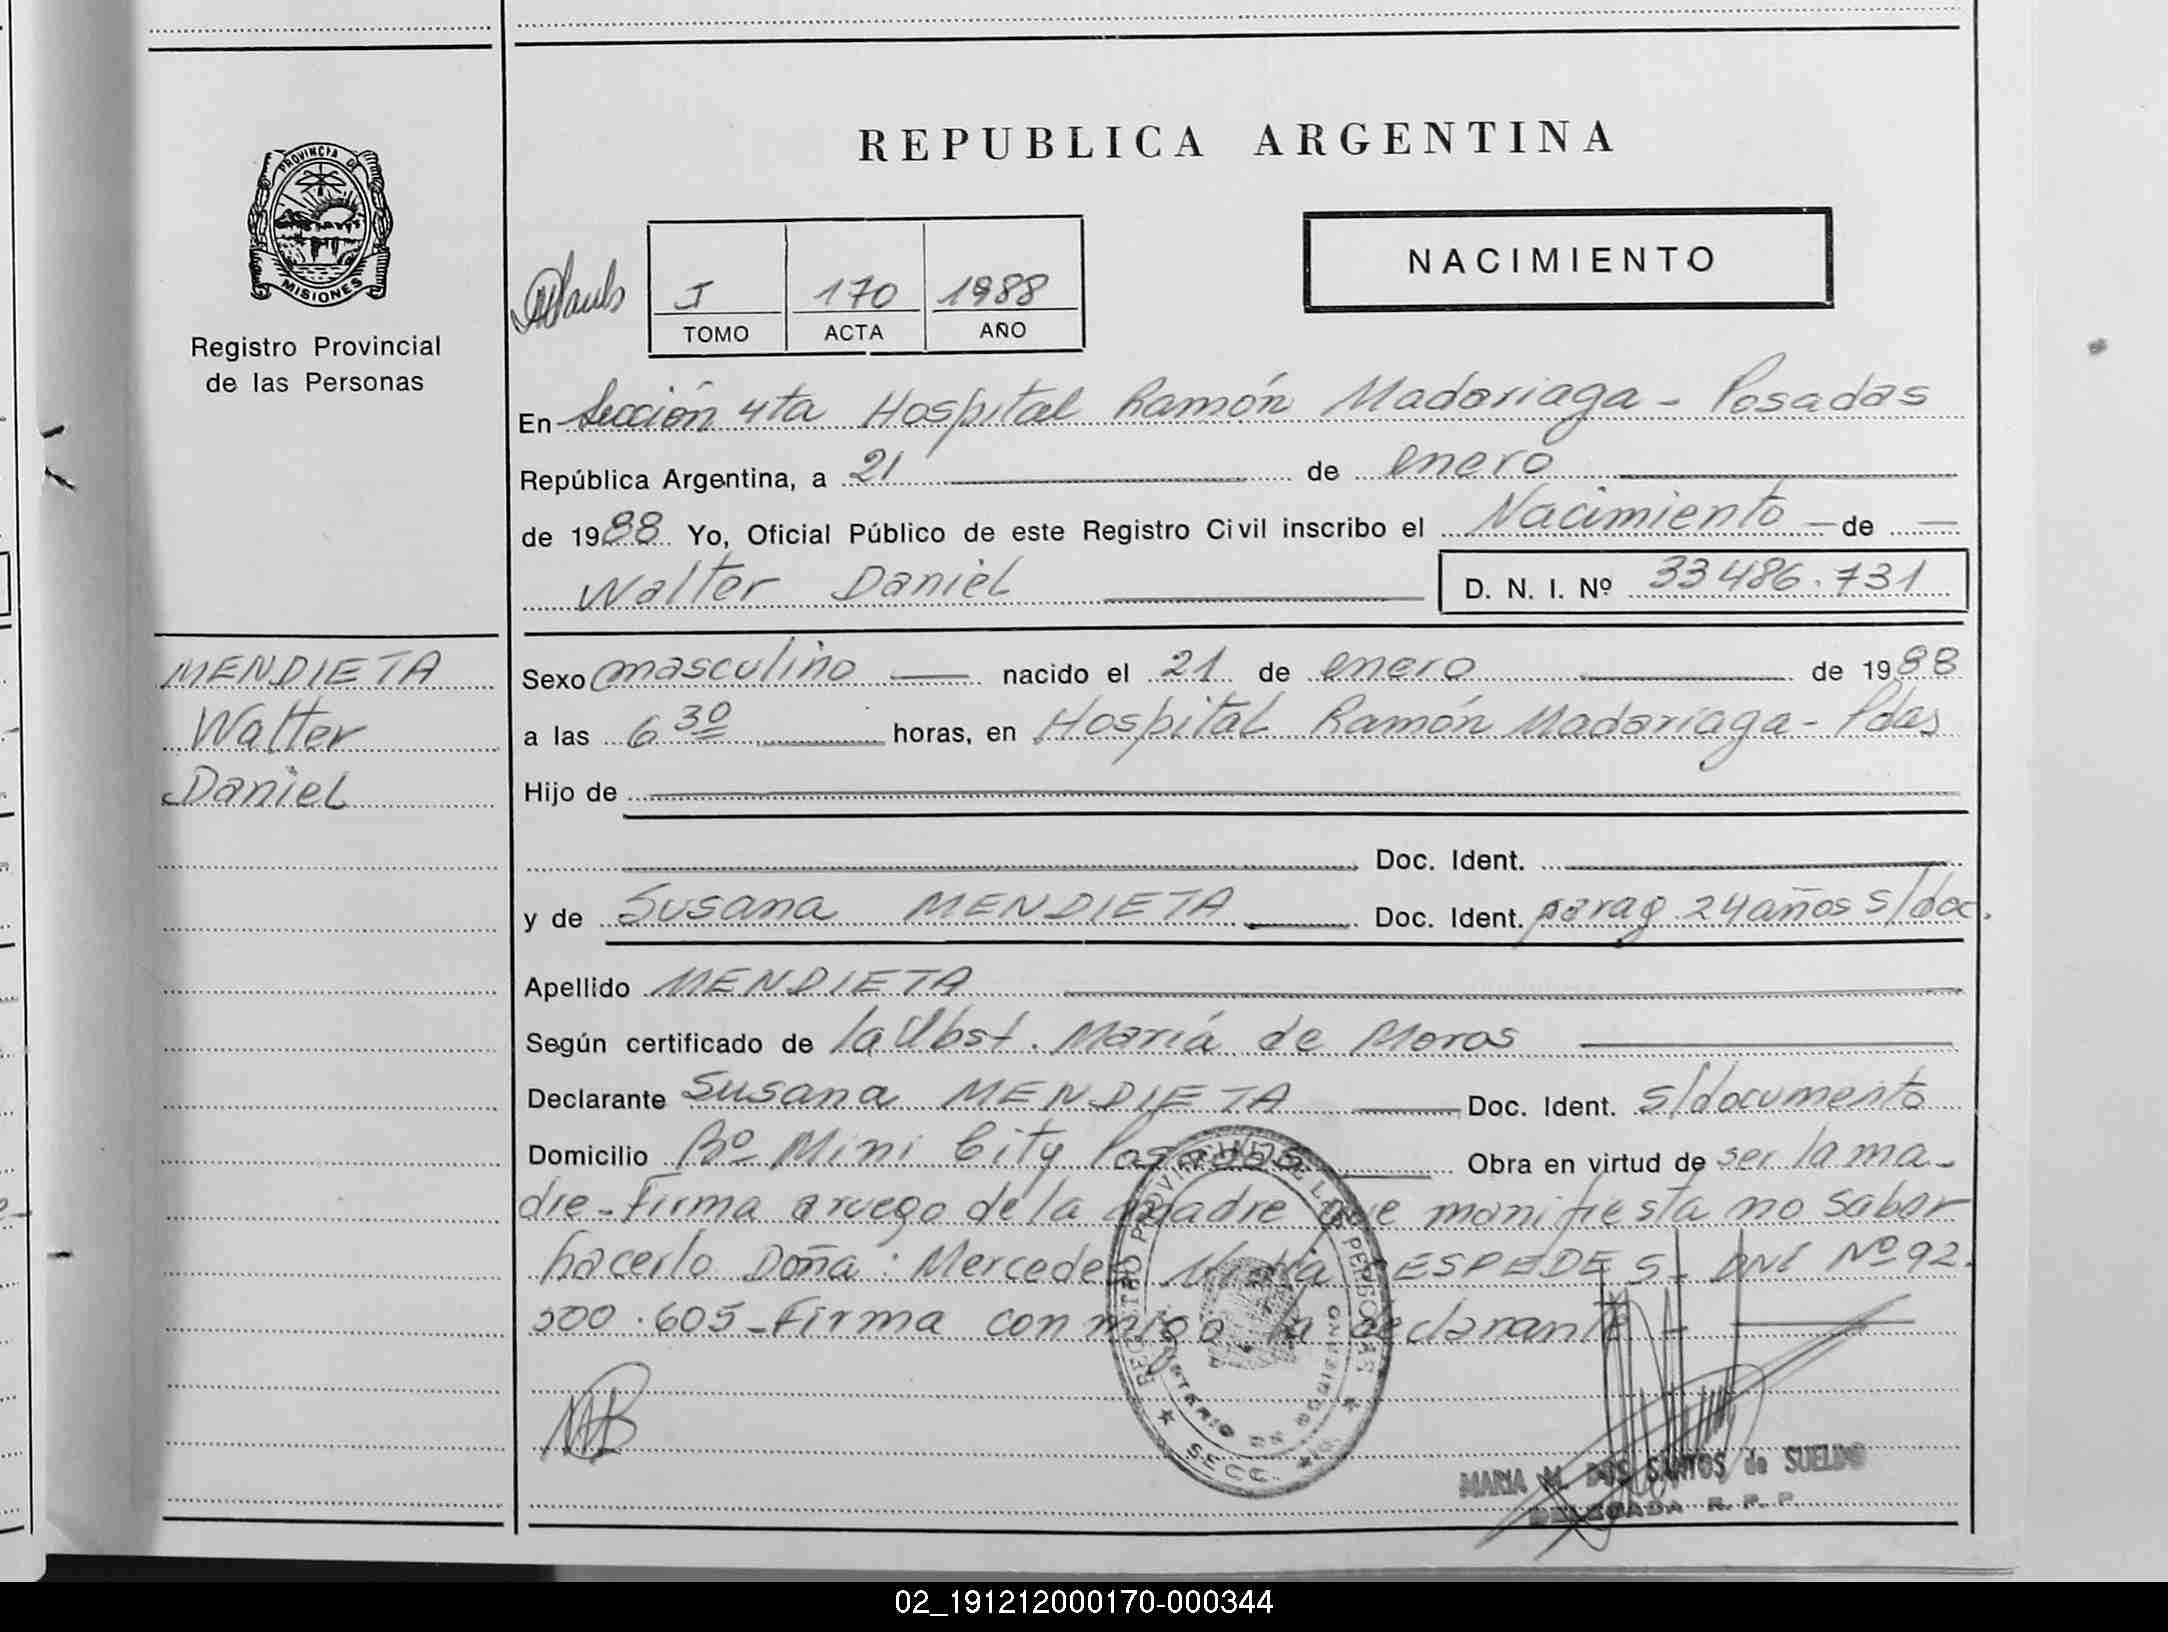 REPUBLICA ARGENTINA
PROVINCIA DE
MISIONES
Registro Provincial
de las Personas
NACIMIENTO
I 170 1988
TOMO ACTA AÑO
En Sección 4ta Hospital Ramón Madariaga - Posadas
República Argentina, a 21 de enero
de 1988 Yo, Oficial Público de este Registro Civil inscribo el Nacimiento de
Walter Daniel D. N. I. Nº 33486.731
MENDIETA
Walter
Daniel
Sexo masculino nacido el 21 de enero de 1988
a las 6 30 horas, en Hospital Ramón Madariaga - Pdas
Hijo de
Doc. Ident.
y de Susana MENDIETA Doc. Ident. parag 24 años s/doc.
Apellido MENDIETA
Según certificado de la Obst. María de Moros
Declarante Susana MENDIETA Doc. Ident. s/documento
Domicilio Bº Mini City Posadas Obra en virtud de ser la ma-
dre - Firma a ruego de la madre que manifiesta no saber
hacerlo Doña: Mercedes ESPEDES - DNI Nº 92.
500.605 - Firma conmigo la declarante -
REGISTRO PROVINCIAL DE LAS PERSONAS
MINISTERIO DE GOBIERNO
SECC.
MARIA M. DOS SANTOS de SUELDO
DELEGADA R. P. P.
02_191212000170-000344